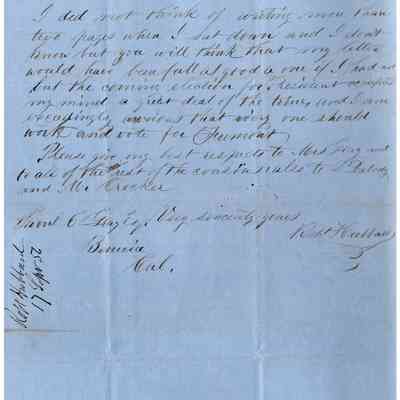 I did not think of writing more than
two pages when I sat down and I don't
know but you will think that my letter
would have been full as good a one if I had not
but the coming election for President occupies
my mind a great deal of the time, and I am
exceedingly anxious that every one should
work and vote for Fremont
Please give my best respects to Mrs Gray and
to all of the rest of the
and Mr Crocker
Very sincerely yours
Robt Hubbard
Benicia
Cal.
Robt Hubbard
17 Sept